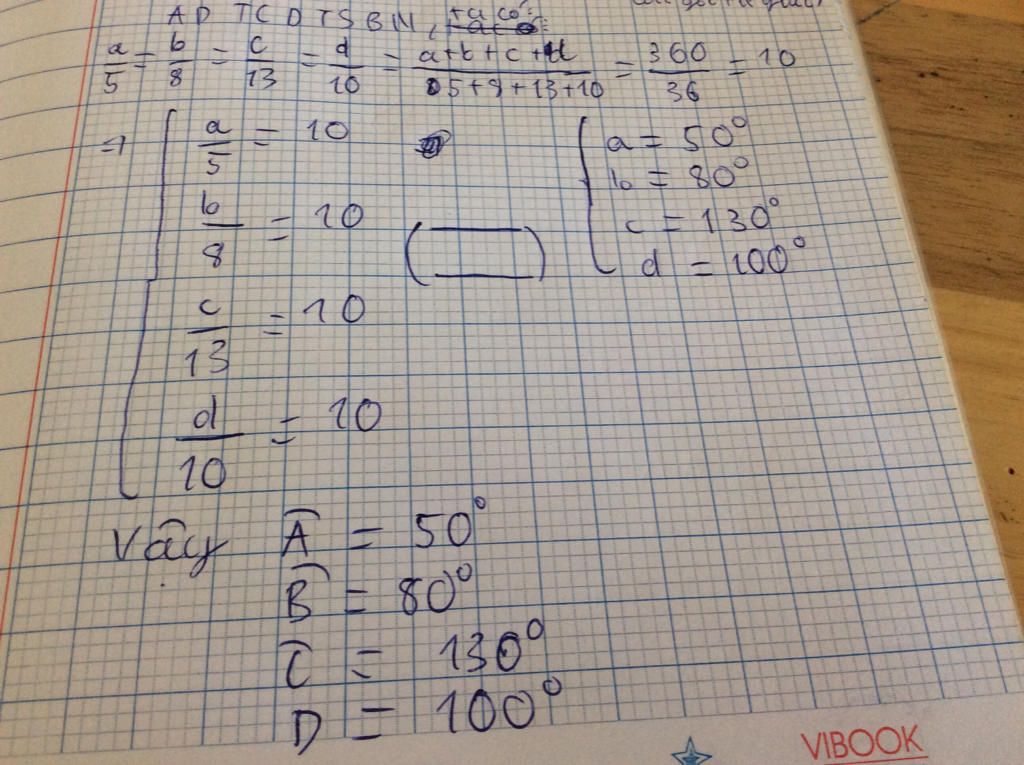 AD TCDTSBN, ta có:
a/5 = b/8 = c/13 = d/10 = a+b+c+d/5+8+13+10 = 360/36 = 10
=> { a/5 = 10
b/8 = 10
c/13 = 10
d/10 = 10
( )
{ a = 50°
b = 80°
c = 130°
d = 100°
Vậy Â = 50°
B̂ = 80°
Ĉ = 130°
D = 100°
VIBOOK